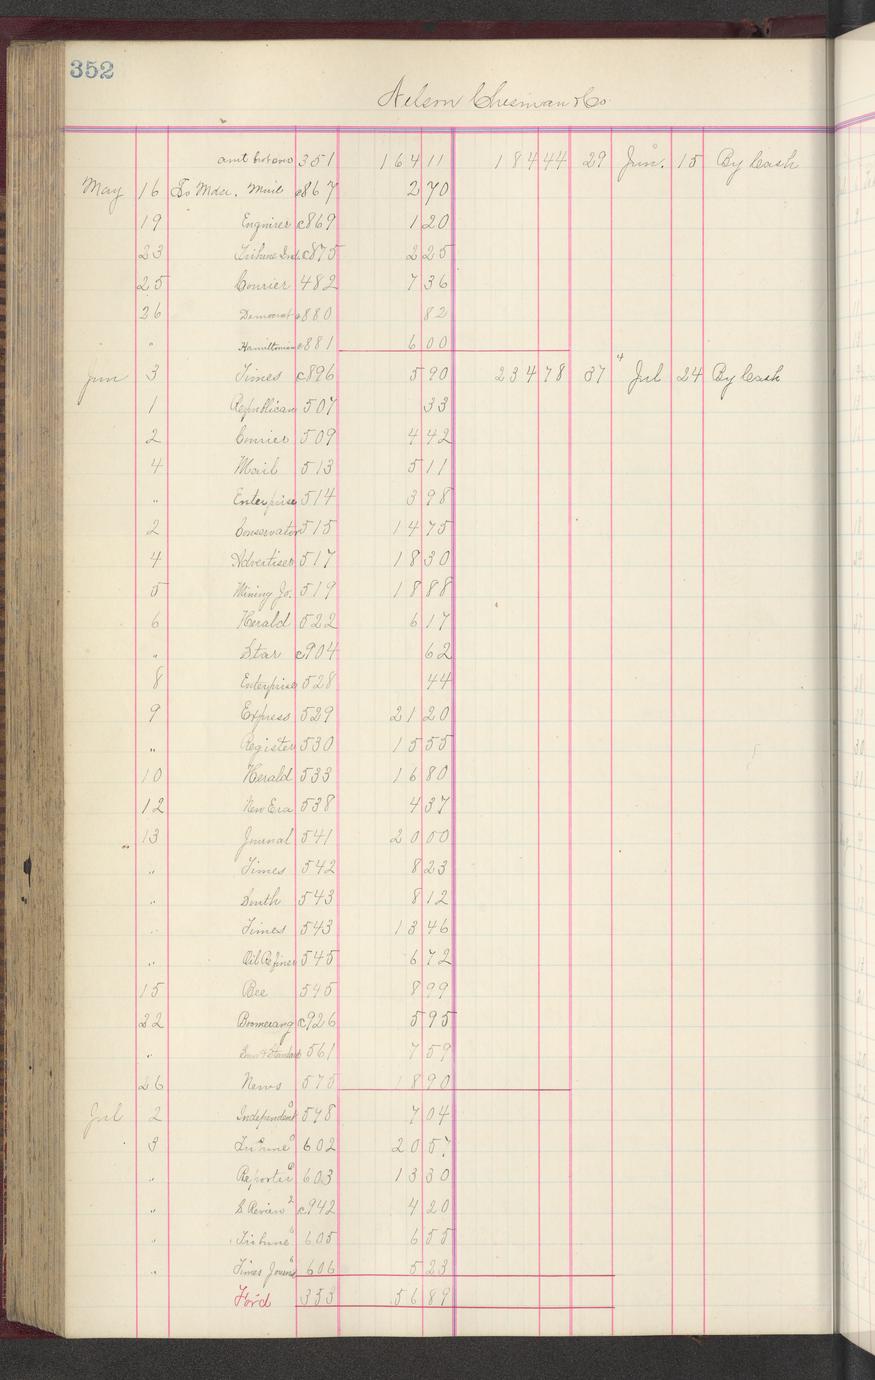 352
Nelson Chesman & Co.
amt bot over 351 164 11 184 44 29 Jun. 15 By Cash
May 16 To Mdse. Mail c867 2 70
19 Enquirer c869 1 20
23 Tribune c875 2 25
25 Courier 482 7 36
26 Democrat c880 82
" Hamiltonian c881 6 00
Jun 3 Times c896 5 90 234 78 37 4 Jul 24 By Cash
1 Republican 507 33
2 Courier 509 4 42
4 Mail 513 5 11
" Enterprise 514 3 98
2 Conservator 515 14 75
4 Advertiser 517 18 30
5 Mining Jo. 519 18 88
6 Herald 522 6 17
" Star c904 62
8 Enterprise 528 44
9 Express 529 21 20
" Register 530 15 55
10 Herald 533 16 80
12 New Era 538 4 37
13 Journal 541 20 00
" Times 542 8 23
" South 543 8 12
" Times 543 13 46
" Oil Refiner 545 6 72
15 Bee 545 8 99
22 Boomerang c926 5 95
" & Standard 561 7 59
26 News 575 18 90
Jul 2 Independent 578 7 04
3 Tribune 602 20 57
" Reporter 603 13 30
" S Review 2 c942 4 20
" Tribune 6 605 6 55
" Times Journal 6 606 5 23
Ford 353 56 89